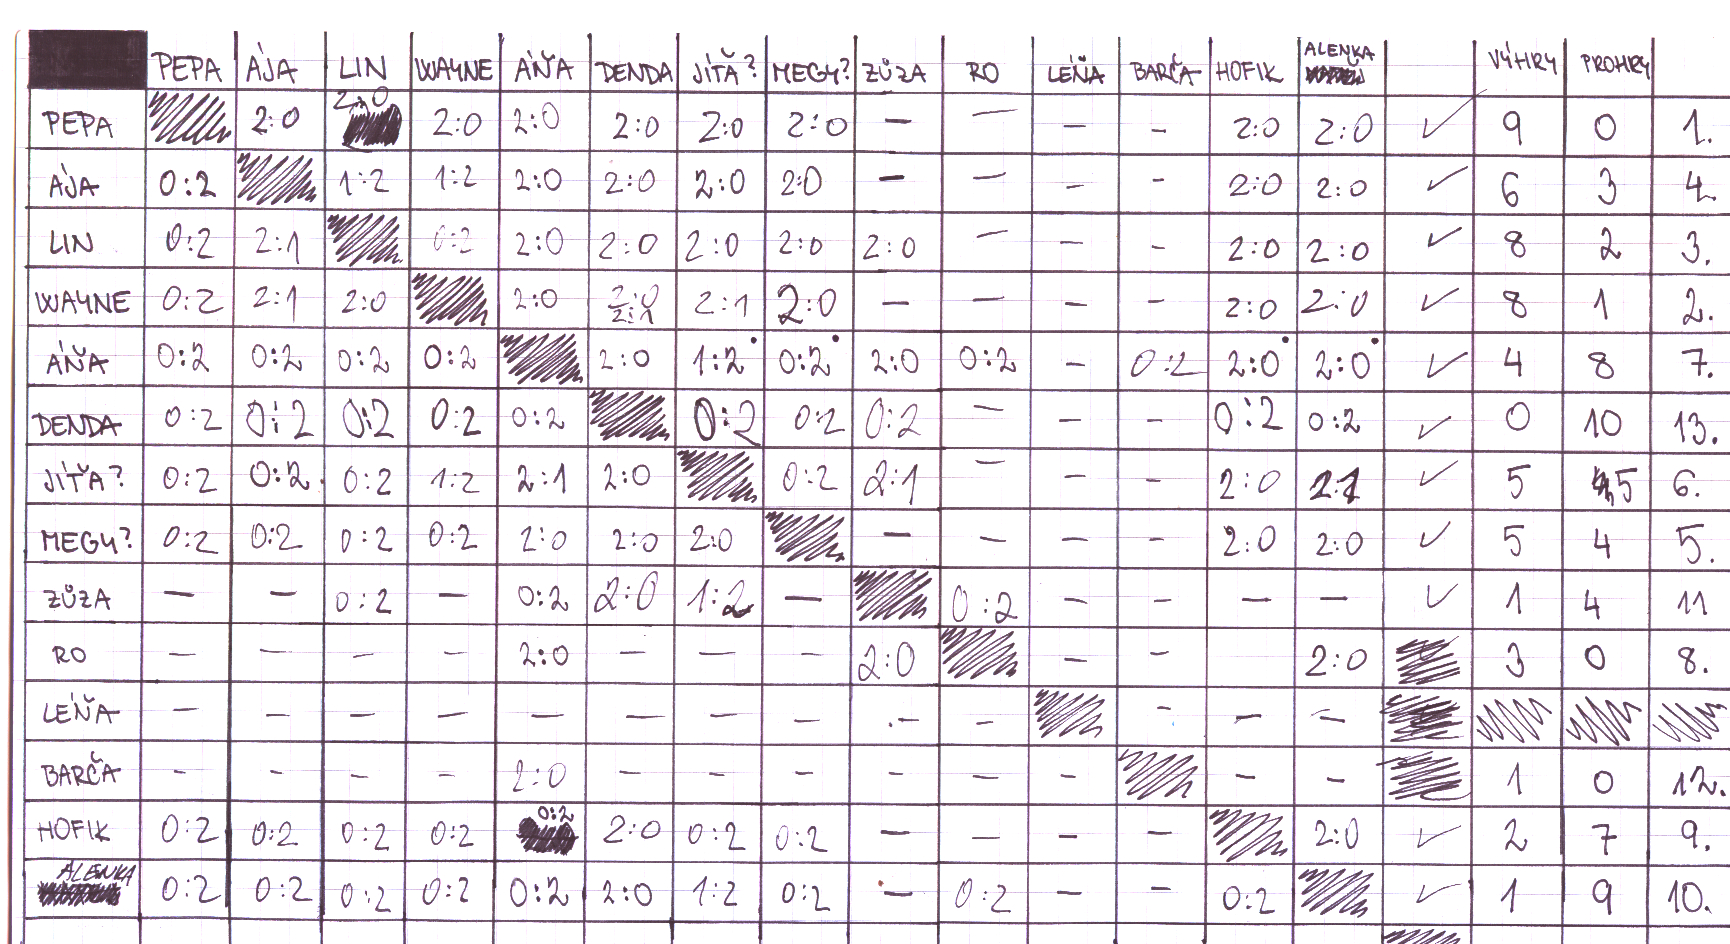 PEPA ÁJA LIN WAYNE ÁŇA DENDA JÍŤA? MEGY? ZŮZA RO LÉŇA BARČA HOFIK ALENKA VÝHRY PROHRY
PEPA 2:0 2:0 2:0 2:0 2:0 2:0 2:0 – – – – 2:0 2:0 ✓ 9 0 1.
ÁJA 0:2 1:2 1:2 2:0 2:0 2:0 2:0 – – – – 2:0 2:0 ✓ 6 3 4.
LIN 0:2 2:1 0:2 2:0 2:0 2:0 2:0 2:0 – – – 2:0 2:0 ✓ 8 2 3.
WAYNE 0:2 2:1 2:0 2:0 2:0 2:1 2:1 2:0 – – – – 2:0 2:0 ✓ 8 1 2.
ÁŇA 0:2 0:2 0:2 0:2 2:0 1:2 0:2 2:0 0:2 – 0:2 2:0 2:0 ✓ 4 8 7.
DENDA 0:2 0:2 0:2 0:2 0:2 0:2 0:2 0:2 – – – 0:2 0:2 ✓ 0 10 13.
JÍŤA? 0:2 0:2 0:2 1:2 2:1 2:0 0:2 2:1 – – – 2:0 2:1 ✓ 5 5 6.
MEGY? 0:2 0:2 0:2 0:2 2:0 2:0 2:0 – – – – 2:0 2:0 ✓ 5 4 5.
ZŮZA – – 0:2 – 0:2 2:0 1:2 – 0:2 – – – – ✓ 1 4 11
RO – – – – 2:0 – – – 2:0 – – 2:0 3 0 8.
LÉŇA – – – – – – – – – – – – –
BARČA – – – – 2:0 – – – – – – – – 1 0 12.
HOFIK 0:2 0:2 0:2 0:2 0:2 2:0 0:2 0:2 – – – – 2:0 ✓ 2 7 9.
ALENKA 0:2 0:2 0:2 0:2 0:2 2:0 1:2 0:2 – 0:2 – – 0:2 ✓ 1 9 10.